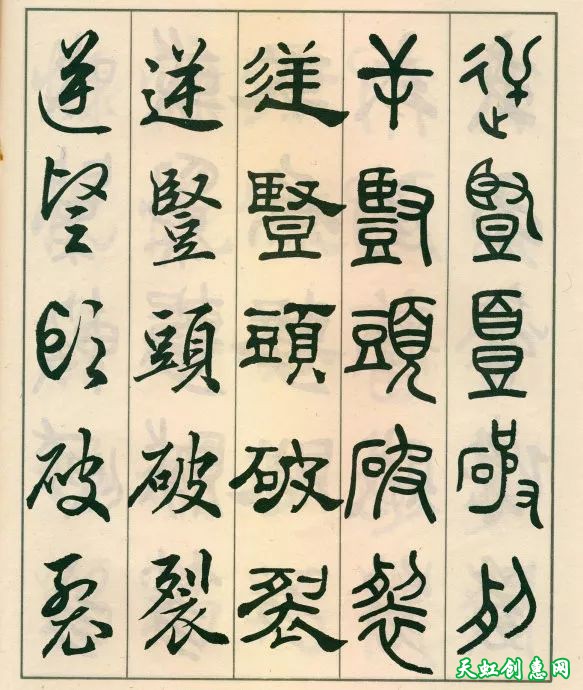 逆豎頭破裂
逆豎頭破裂
逆豎頭破裂
逆豎頭破裂
逆豎頭破裂
天虹创惠网